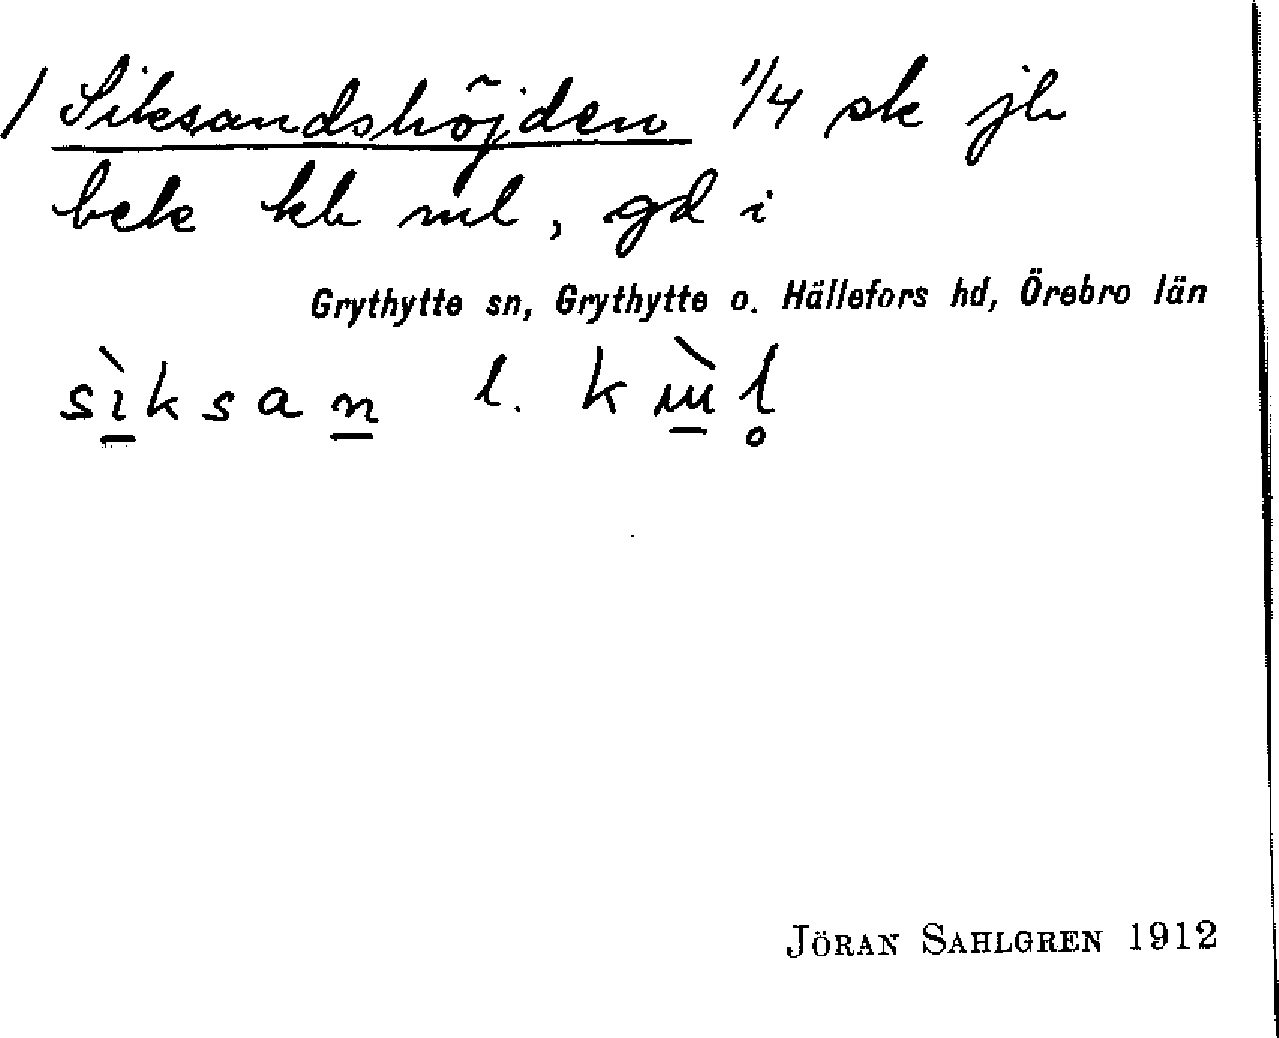 / Siksandshöjden 1/4 sk jb
bek kb ml, gd i
Grythytte sn, Grythytte o. Hällefors hd, Örebro län
sìksan l.
JÖRAN SAHLGREN 1912